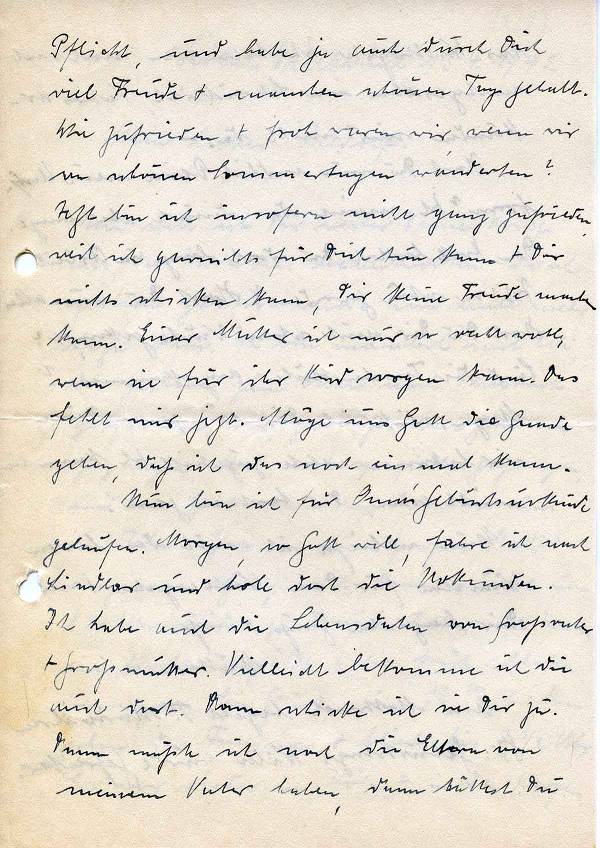 Pflicht, und habe ja auch durch Dich
viel Freude + manchen schönen Tag gehabt.
Wie zufrieden + froh waren wir, wenn wir
an schönen Sommertagen wanderten?
Jetzt bin ich insofern nicht ganz zufrieden,
weil ich garnichts für Dich tun kann + Dir
nichts schicken kann, Dir keine Freude machen
kann. Einer Mutter ist nur so recht wohl,
wenn sie für ihr Kind sorgen kann. Das
fehlt mir jetzt. Möge uns Gott die Gnade
geben, daß ich das noch einmal kann.
Nun bin ich für Geburtsurkunde
gelaufen. Morgen, so Gott will, fahre ich nach
Lindlar und hole dort die Urkunden.
Ich habe auch die Lebensdaten von Großvater
+ Großmutter. Vielleicht bekomme ich die
auch dort. Dann schicke ich sie Dir zu.
Dann müßte ich noch die Eltern von
meinem Vater haben, dann hättest Du